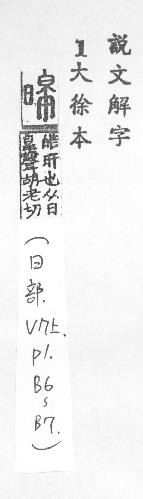 說文解字
1大徐本
暤
晧旰也从日
皋聲胡老切
(日部. V7上. P1. B6~B7.)